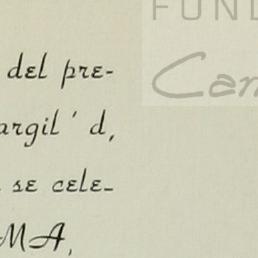 FUND
del pre-
Can
argil'd,
se cele-
MA,